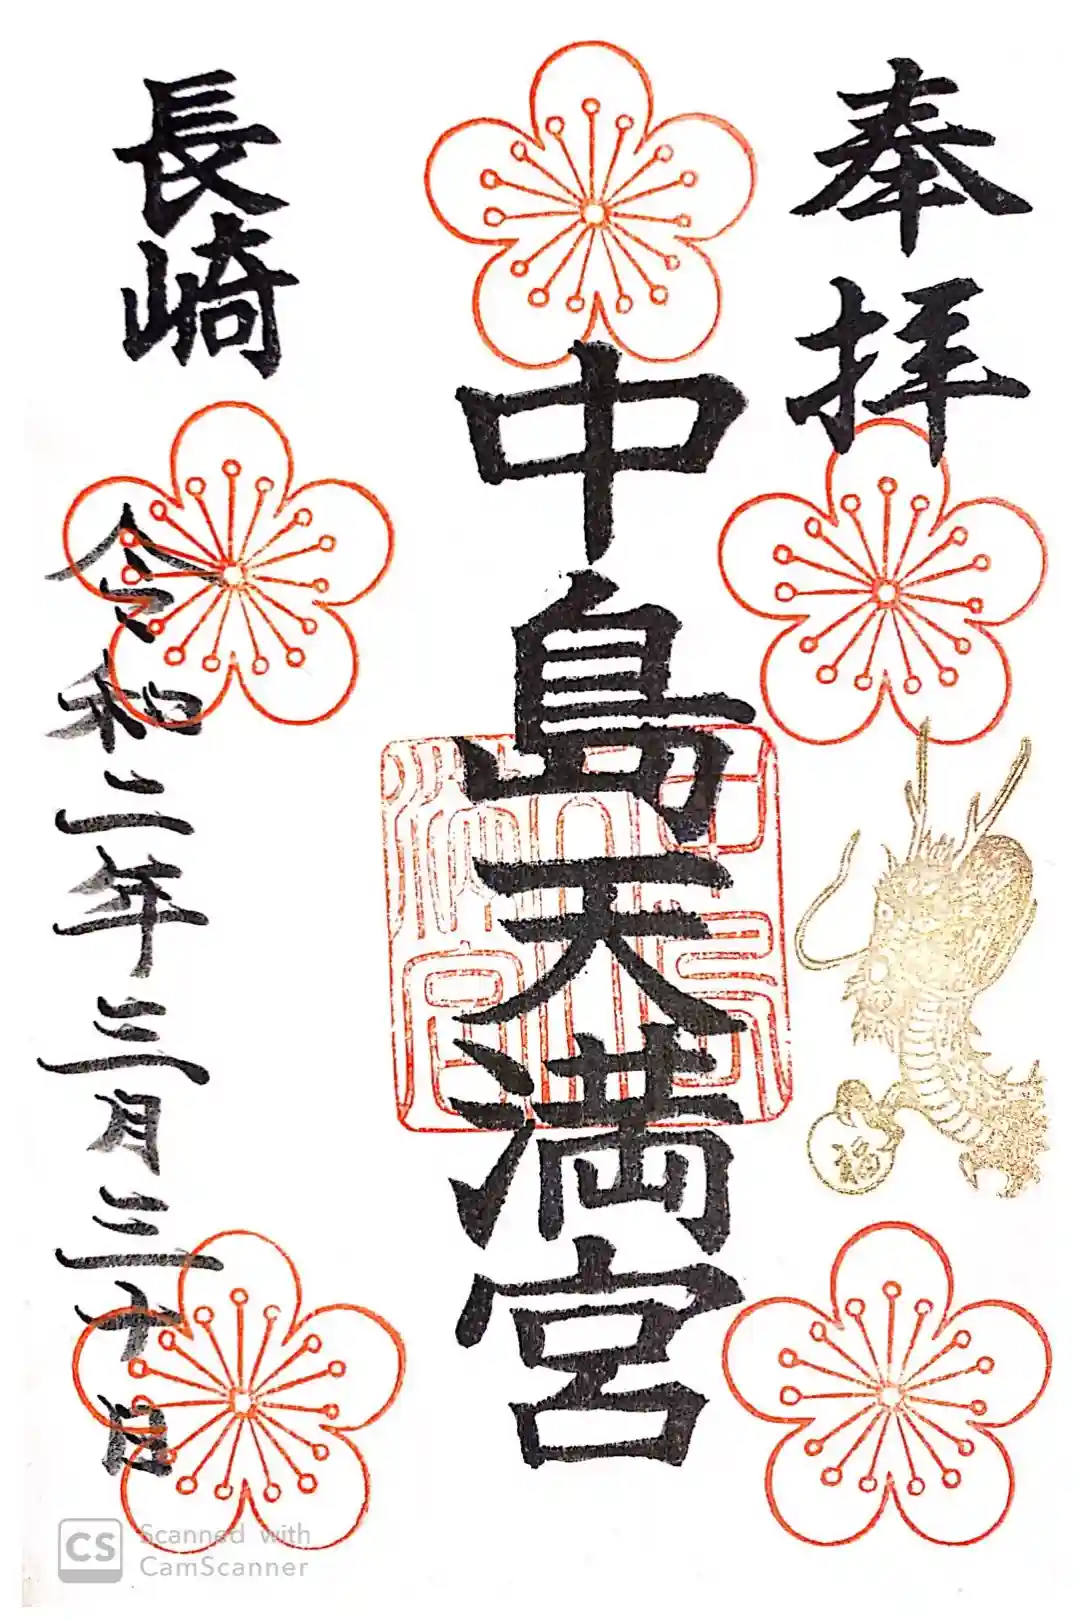 奉拝
中島天満宮
長崎
令和二年三月三十日
福
CS Scanned with
CamScanner